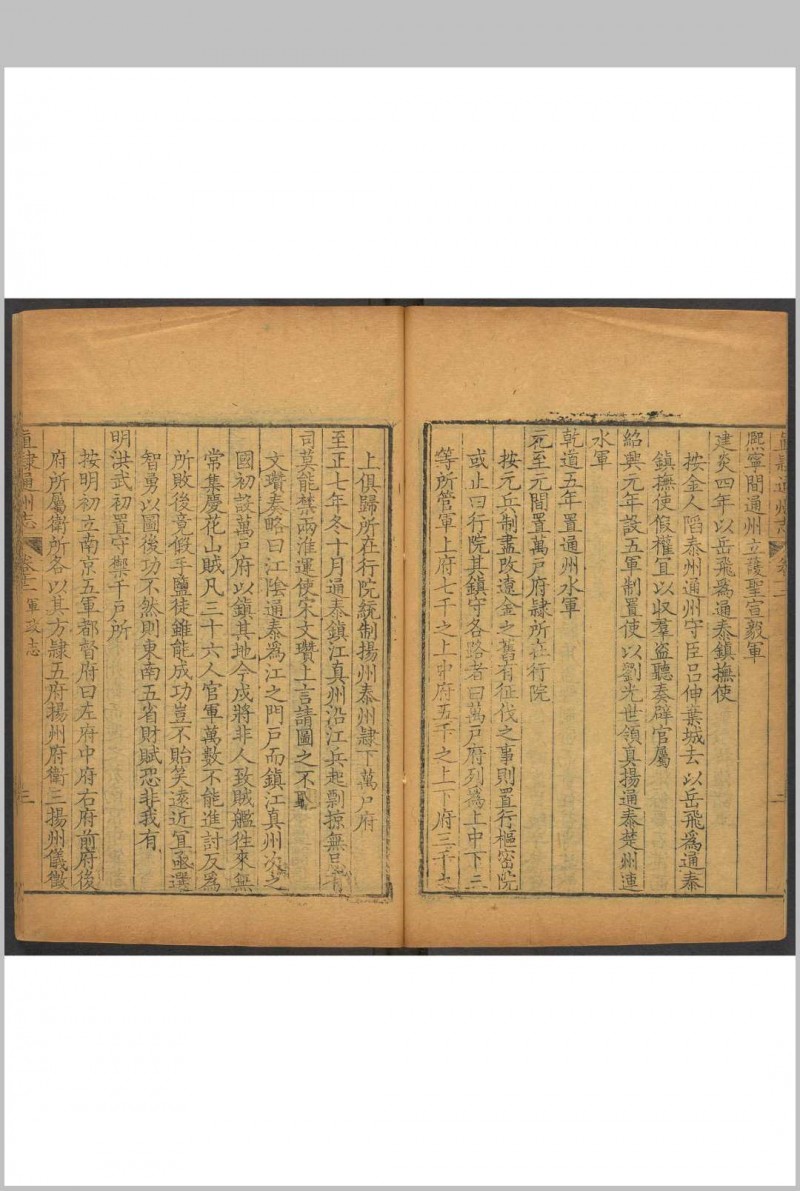 直隸通州志 卷十二 二
熙寧間通州立護聖宣毅軍
建炎四年以岳飛爲通泰鎮撫使
按金人陷泰州通州守臣呂伸棄城去以岳飛爲通泰
鎮撫使假權宜以收羣盜聽奏辟官屬
紹興元年設五軍制置使以劉光世領真揚通泰楚州連
水軍
乾道五年置通州水軍
元至元間置萬戶府隷所在行院
按元兵制盡改遼金之舊有征伐之事則置行樞密院
或止曰行院其鎮守各路者曰萬戶府列爲上中下三
等所管軍上府七千之上中府五千之上下府三千之
上俱歸所在行院統制揚州泰州隷下萬戶府
至正七年冬十月通泰鎮江真州沿江兵起剽掠無忌有
司莫能禁兩淮運使宋文瓚上言請圖之不
文瓚奏略曰江陰通泰爲江之門戶而鎮江真州次之
國初設萬戶府以鎮其地今戍將非人致賊艦徃來無
常集慶花山賊凡三十六人官軍萬數不能進討反爲
所敗後竟假手鹽徒雖能成功豈不貽笑遠近宜亟選
智勇以圖後功不然則東南五省財賦恐非我有
明洪武初置守禦千戶所
按明初立南京五軍都督府曰左府中府右府前府後
府所屬衛所各以其方隷五府揚州府衛三揚州儀徵
直隸通州志 卷十二 軍政志 三